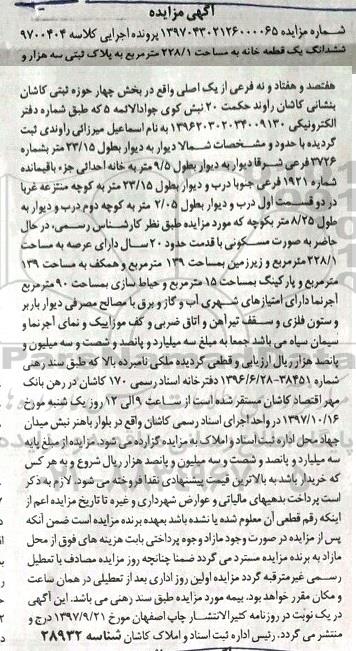 آگهی مزایده
شماره مزایده ۱۳۹۷۰۴۳۰۲۱۲۶۰۰۰۰۶۵ پرونده اجرایی کلاسه ۹۷۰۰۴۰۴
ششدانگ یک قطعه خانه به مساحت ۲۲۸/۱ مترمربع به پلاک ثبتی سه هزار و
هفتصد و هفتاد و نه فرعی از یک اصلی واقع در بخش چهار حوزه ثبتی کاشان
بنشانی کاشان راوند حکمت ۲۰ نبش کوی جوادالائمه ۵ که طبق شماره دفتر
الکترونیکی ۱۳۹۶۲۰۳۰۲۰۳۴۰۰۹۱۳۰ به نام اسماعیل میرزائی راوندی ثبت
گردیده با حدود و مشخصات شمالا دیوار به دیوار بطول ۲۳/۱۵ متر بشماره
۳۷۲۶ فرعی شرقا دیوار به دیوار بطول ۹/۵ متر به خانه احداثی جزء باقیمانده
شماره ۱۹۲۱ فرعی جنوبا درب و دیوار بطول ۲۳/۱۵ متر به کوچه منتزعه غربا
در دو قسمت اول درب و دیوار بطول ۲/۰۵ متر به کوچه دوم درب و دیوار به
طول ۸/۲۵ متر بکوچه که مورد مزایده طبق نظر کارشناس رسمی، در حال
حاضر به صورت مسکونی با قدمت حدود ۲۰ سال دارای عرصه به مساحت
۲۲۸/۱ مترمربع و زیرزمین بمساحت ۱۳۹ مترمربع و همکف به مساحت ۱۳۹
مترمربع و پارکینگ بمساحت ۱۵ مترمربع و حیاط سازی بمساحت ۹۰ مترمربع
آجرنما دارای امتیازهای شهری آب و گاز و برق با مصالح مصرفی دیوار باربر
و ستون فلزی و سقف تیرآهن و اتاق ضربی و کف موزاییک و نمای آجرنما و
سیمان سیاه می باشد جمعا به مبلغ سه میلیارد و پانصد و شصت و سه میلیون و
پانصد هزار ریال ارزیابی و قطعی گردیده ملکی نامبرده بالا که طبق سند رهنی
شماره ۳۸۴۵۱-۱۳۹۶/۶/۲۸ دفترخانه اسناد رسمی ۱۷۰ کاشان در رهن بانک
مهر اقتصاد کاشان مستقر شده است از ساعت ۹ الی ۱۲ روز یک شنبه مورخ
۱۳۹۷/۱۰/۱۶ در واحد اجرای اسناد رسمی کاشان واقع در بلوار باهنر نبش میدان
جهاد محل اداره ثبت اسناد و املاک به مزایده گزارده می شود. مزایده از مبلغ پایه
سه میلیارد و پانصد و شصت و سه میلیون و پانصد هزار ریال شروع و به هر کس
که خریدار باشد به بالاترین قیمت پیشنهادی نقدا فروخته می شود. لازم به ذکر
است پرداخت بدهیهای مالیاتی و عوارض شهرداری و غیره تا تاریخ مزایده اعم از
اینکه رقم قطعی آن معلوم شده یا نشده باشد بعهده برنده مزایده است ضمن آنکه
پس از مزایده در صورت وجود مازاد وجوه پرداختی بابت هزینه های فوق از محل
مازاد به برنده مزایده مسترد می گردد ضمنا چنانچه روز مزایده مصادف با تعطیل
رسمی غیرمترقبه گردد مزایده اولین روز اداری بعد از تعطیلی در همان ساعت
و مکان مقرر خواهد بود. بیمه مورد مزایده طبق سند رهنی می باشد. این آگهی
در یک نوبت در روزنامه کثیرالانتشار چاپ اصفهان مورخ ۱۳۹۷/۹/۲۱ درج و
منتشر می گردد. رئیس اداره ثبت اسناد و املاک کاشان شناسه ۲۸۹۳۲